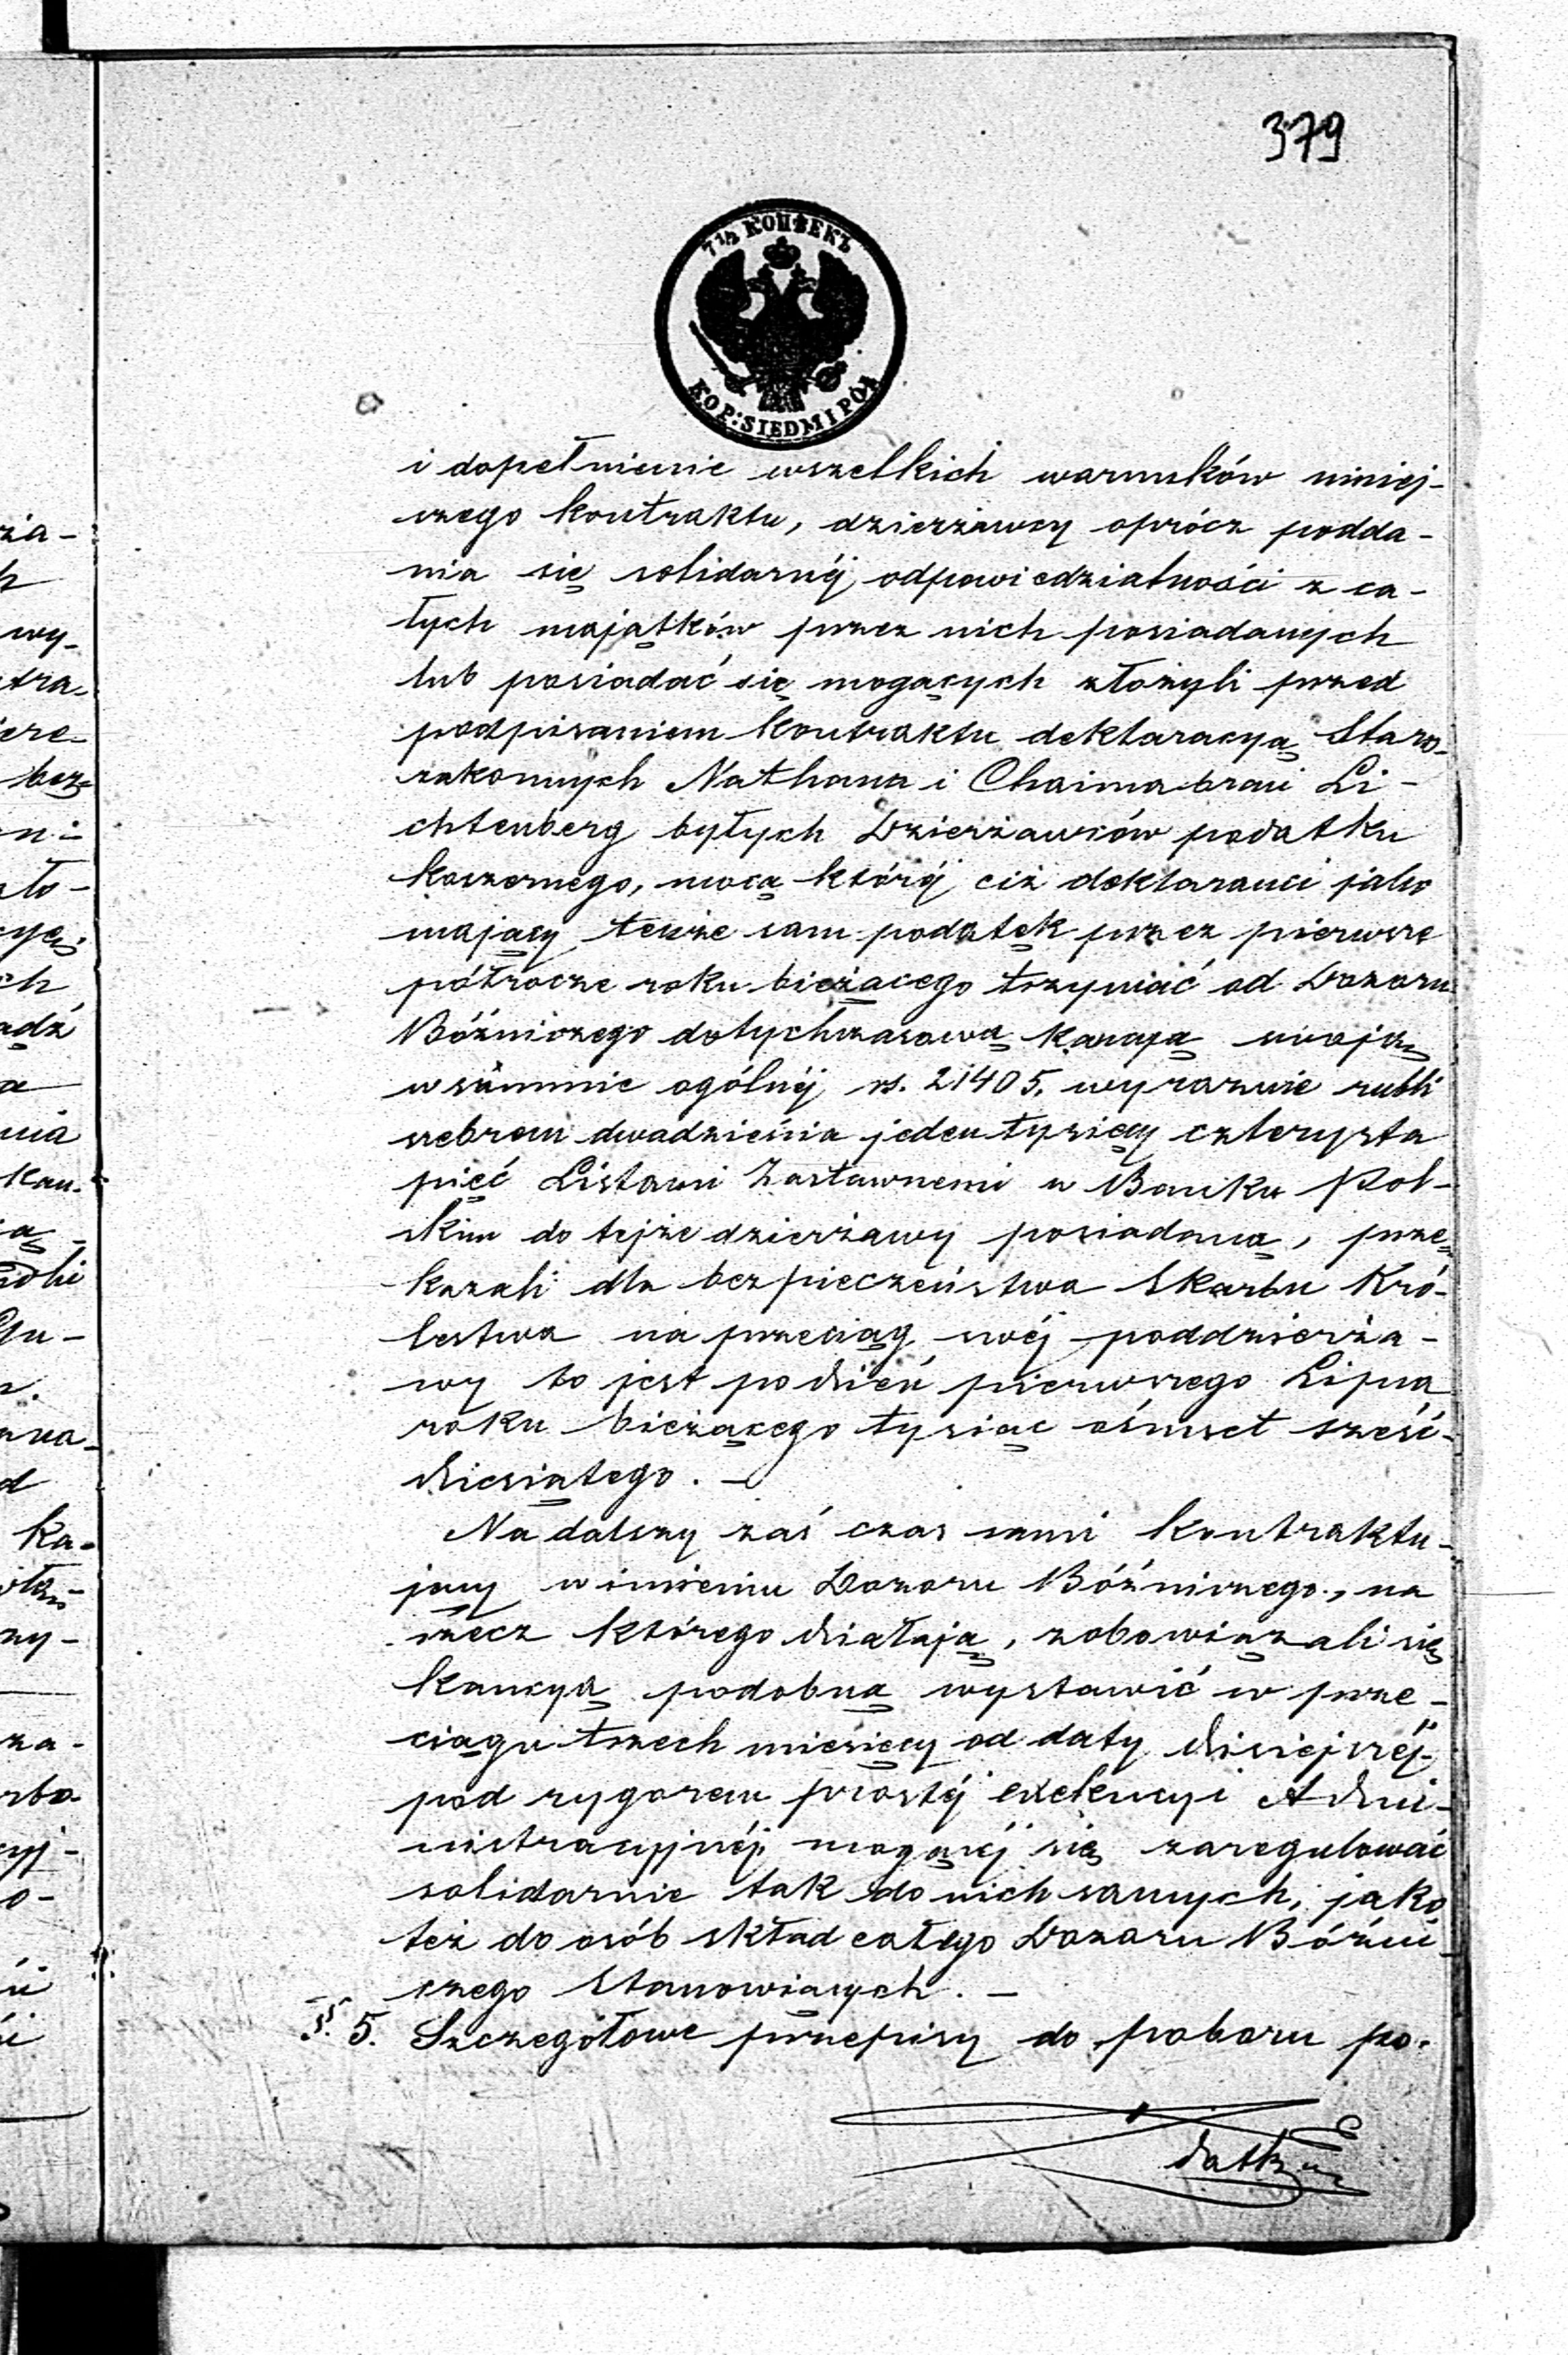 379
7½ КОПѢЕКЪ
KOP: SIEDM I PÓŁ
i dopełnienie wszelkich warunków niniej-
szego kontraktu, dzierżawcy oprócz podda-
nia się solidarnéj odpowiedzialności z ca-
łych majątków przez nich posiadanych
lub posiadać się mogących złożyli przed
podpisaniem kontraktu deklaracyą Staro-
zakonnych Nathana i Chaima braci Li-
chtenberg byłych Dzierżawców podatku
koszernego, mocą któréj ciż deklaranci jako
mający tenże sam podatek przez pierwsze
półrocze roku bieżącego trzymać od Dozoru
Bóźniczego dotychczasową kaucyą swoją
w summie ogólnéj rs. 21405. wyraznie rubli
srebrem dwadzieścia jeden tysięcy czterysta
pięć Listami Zastawnemi w Banku Pol-
skim do tejże dzierżawy posiadaną, prze-
kazali dla bezpieczeństwa Skarbu Kró-
lestwa na przeciąg swéj poddzierża-
wy to jest po dzień pierwszego Lipca
roku bieżącego tysiąc ośmset sześć-
dziesiątego. —
Na dalszy zaś czas sami kontraktu-
jący w imieniu Dozoru Bóźniczego, na
rzecz którego działają, zobowiązali się
kaucyą podobną wystawić w prze-
ciągu trzech miesięcy od daty dzisiejszéj
pod rygorem prostéj exekucyi Admi-
nistracyjnéj mogącéj się zaregulować
solidarnie tak do nich samych, jako
też do osób skład całego Dozoru Bóźni-
czego stanowiących. —
§. 5. Szczegółowe przepisy do poboru po-
datku